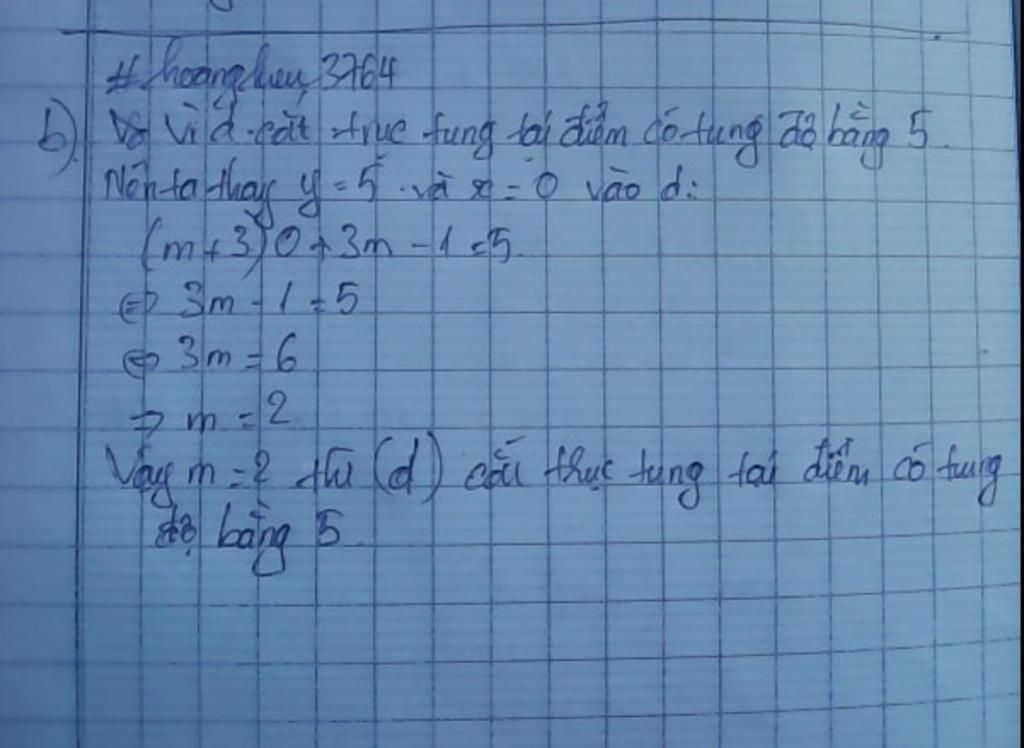 #hoanghuy3764
b) Vì d cắt trục tung tại điểm có tung độ bằng 5.
Nên ta thay y = 5 và x = 0 vào d:
(m+3)0+3m-1=5.
⇔ 3m-1=5
⇔ 3m=6
⇒ m=2
Vậy m=2 thì (d) cắt trục tung tại điểm có tung
độ bằng 5.